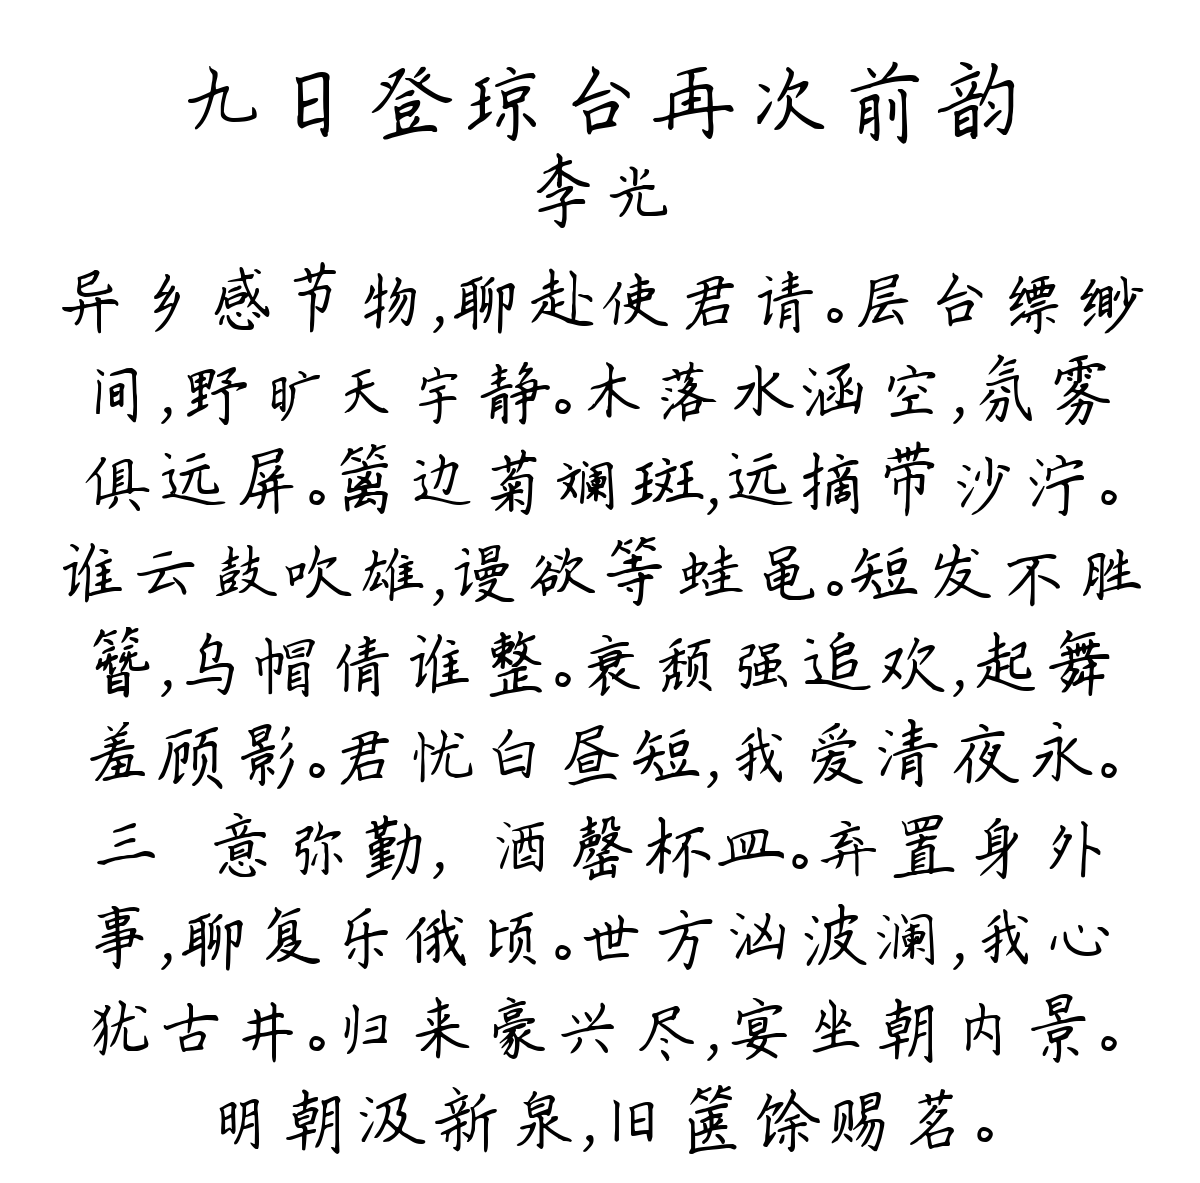 九日登琼台再次前韵
李光
异乡感节物,聊赴使君请。层台缥缈
间,野旷天宇静。木落水涵空,氛雾
俱远屏。篱边菊斓斑,远摘带沙泞。
谁云鼓吹雄,谩欲等蛙黾。短发不胜
簪,乌帽倩谁整。衰颓强追欢,起舞
羞顾影。君忧白昼短,我爱清夜永。
三 意弥勤, 酒罄杯皿。弃置身外
事,聊复乐俄顷。世方汹波澜,我心
犹古井。归来豪兴尽,宴坐朝内景。
明朝汲新泉,旧箧馀赐茗。